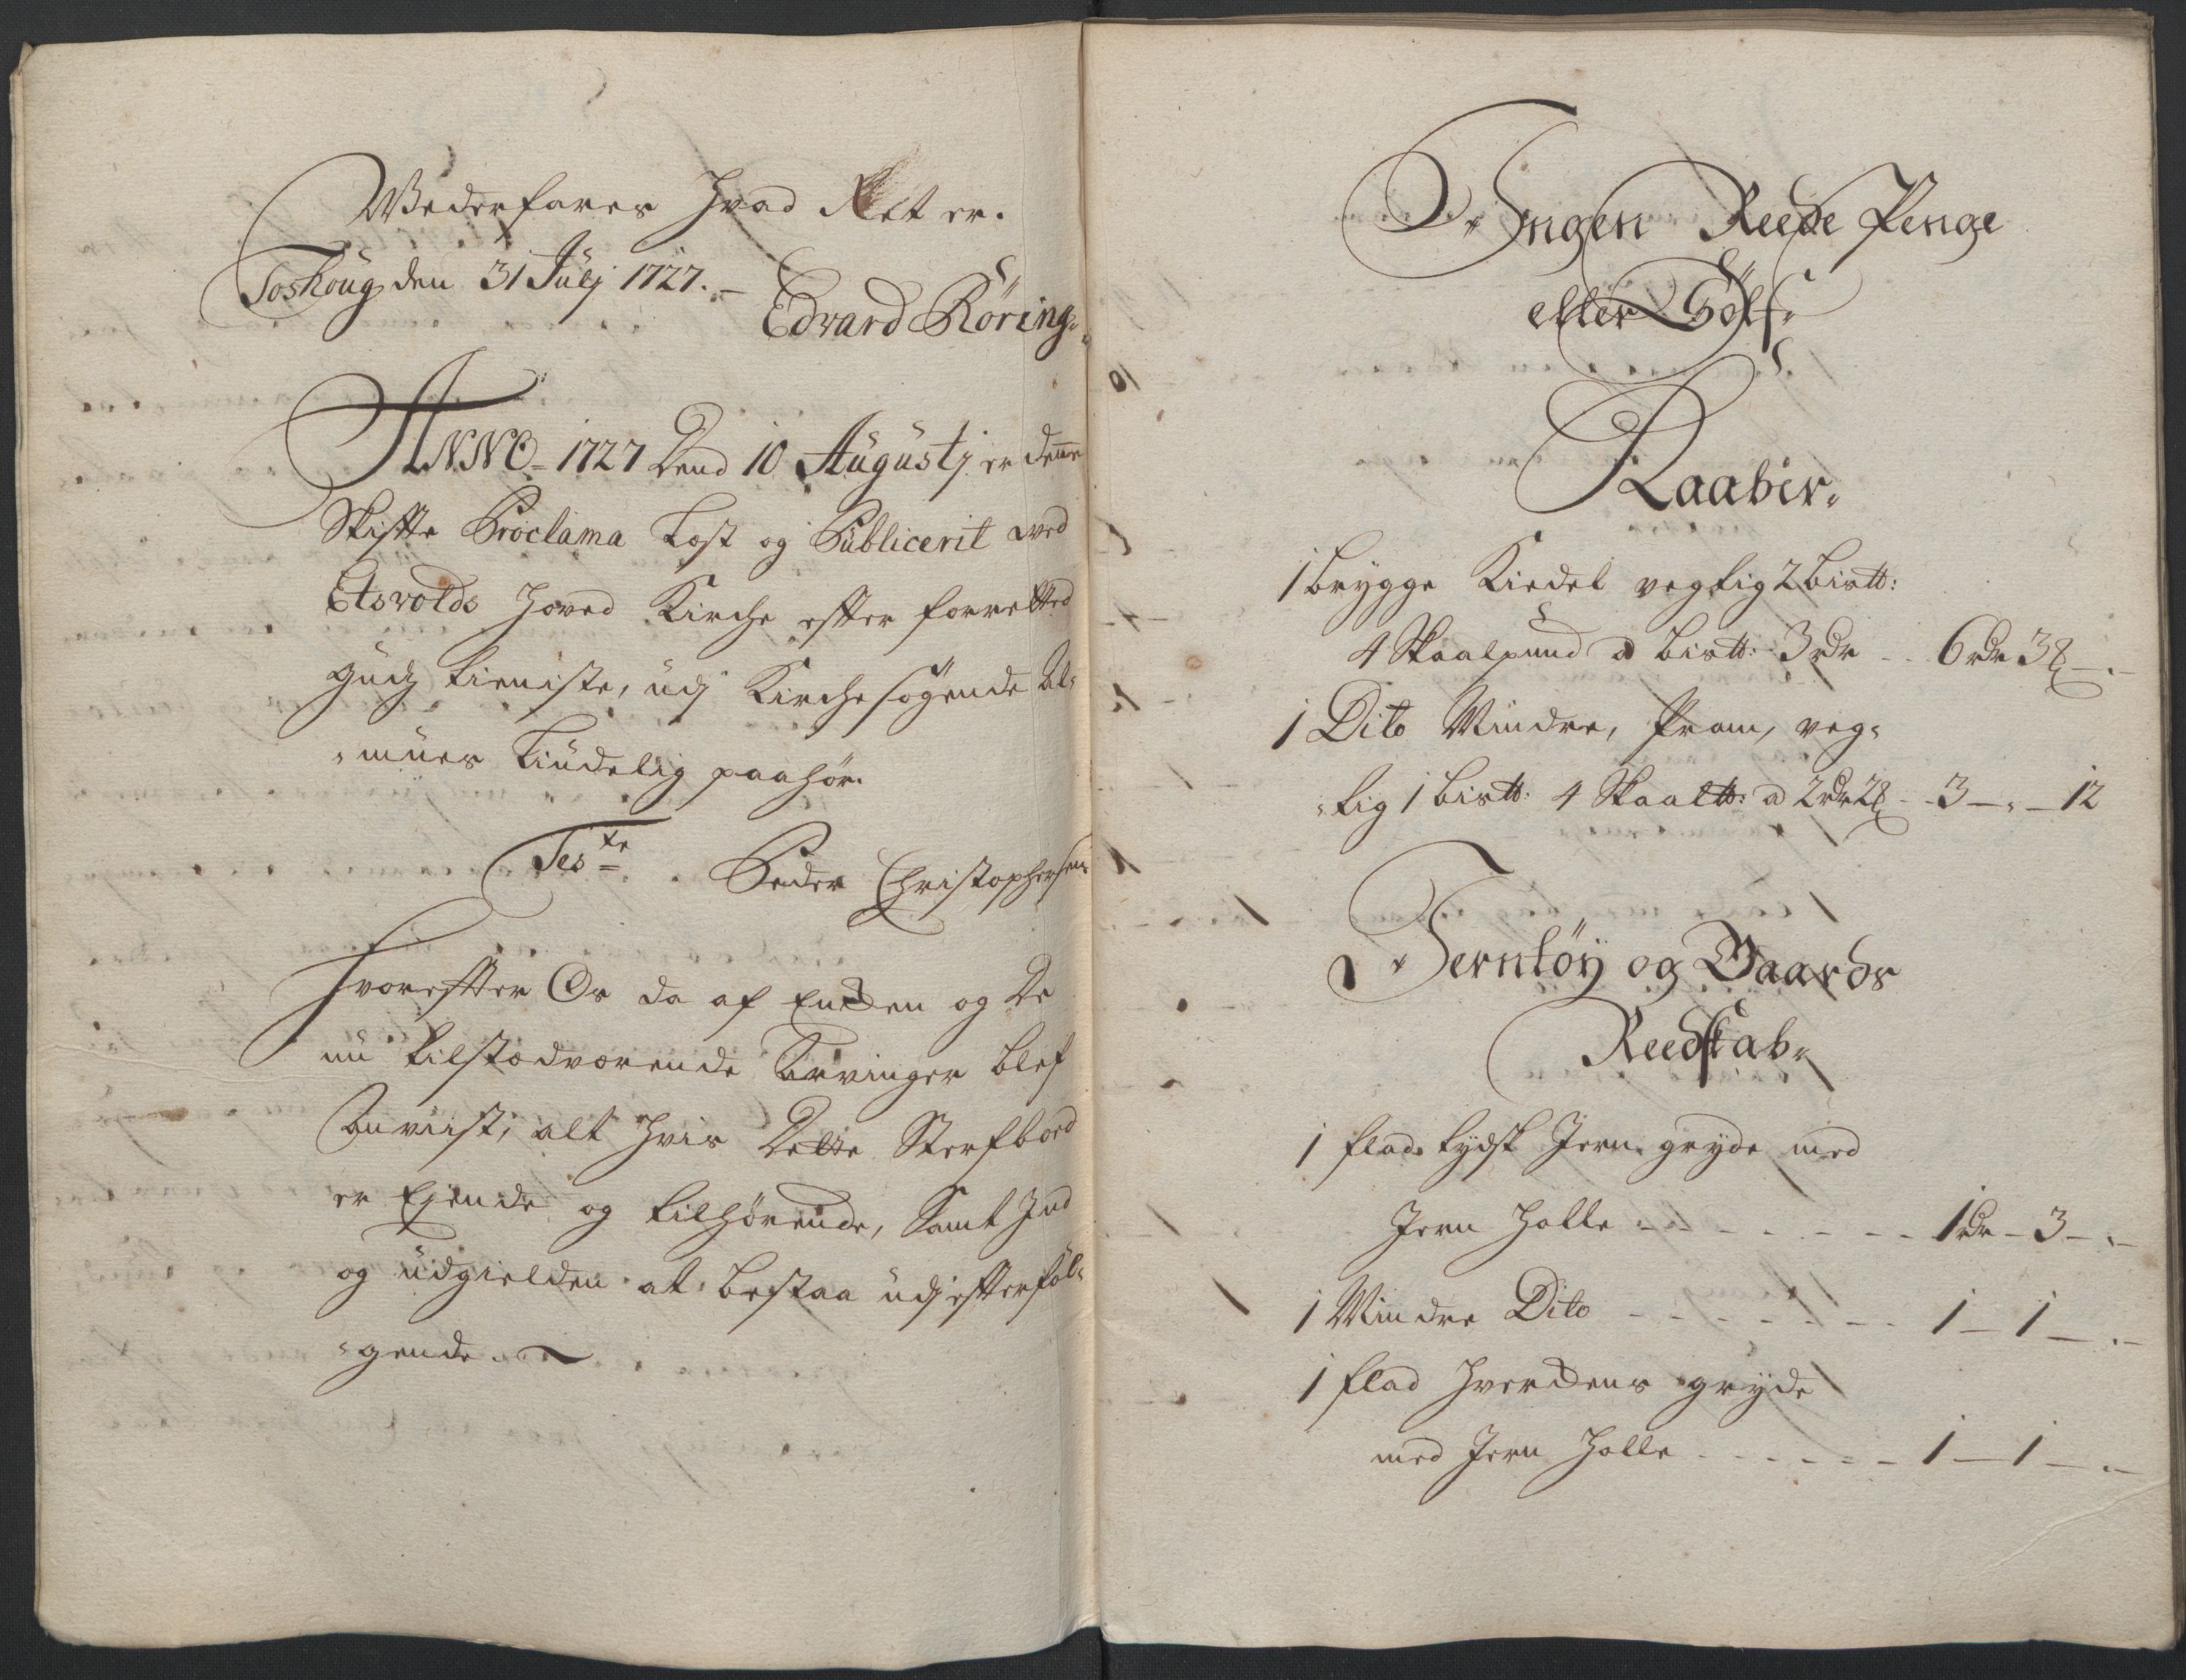 Wederfares hvad Ret er.
Toshoug den 31 Julj 1727. –
Edvard Röring.
ANNO 1727 Dend 10 Augustj er denne
Skiftte Proclama Læst og Publicerit ved
Etsvolds Hoved Kirche efter forretted
Gudz tieniste, udj Kirche søgende Al-
-mues tiudelig paahør.
Teste Peder Christophersen
Hvorefter Os da af Enchen og De
nu tilstædværende Arvinger blef
Anviist, alt hvis Dette Sterfboed
er Ejende og tilhørende, Samt Ind
og udgielden at bestaa udj efterføl-
-gende.
Ingen Reede Penge
eller Sölf.
Kaaber.
1 brygge Kiedel vegtig 2 bis℔:
4 Skaalpund a bis℔: 3 rdr - - 6 rdr 3 ß - . -
1 Dito Mindre, Fram, veg-
-tig 1 bis℔: 4 Skaal℔: a 2 rdr 2 ß - - 3 - . - 12
Jerntöÿ og Gaards
Reedskab.
1 flad tydsk Jern gryde med
Jern Holle - - - - - - - - 1 rdr - 3 - . -
1 Mindre Dito - - - - - - - 1 - 1 - . -
1 flad Hverchens gryde
med Jern Holle - - - - - - 1 - 1 - . -